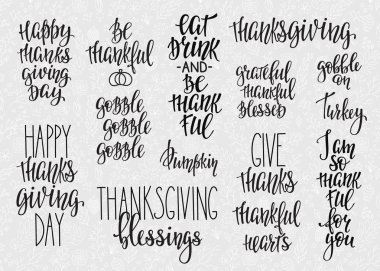 Happy
thanks
giving
Day
be
thankful
eat
drink
-AND-
be
thank
ful
thanksgiving
gobble
gobble
gobble
grateful
thankful
blessed
gobble
on
Turkey
Pumpkin
HAPPY
thanks
giving
DAY
THANKSGIVING
blessings
GIVE
thanks
thankful
hearts
I am
so
thank
ful
for
you